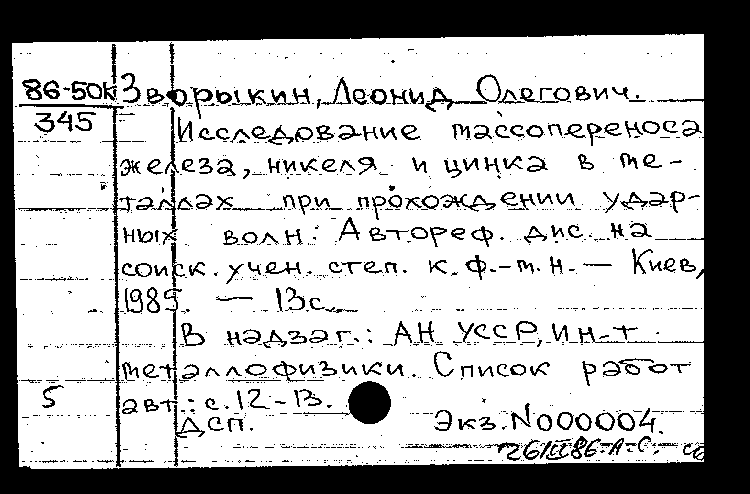 86-50к Зворыкин, Леонид Олегович.
345
Исследование массопереноса
железа, никеля и цинка в ме-
таллах при прохождении удар-
ных волн: Автореф. дис. на
соиск. учен. степ. к.ф.-м.н. — Киев,
1985. — 13с.
В надзаг.: АН УССР, Ин-т
металлофизики. Список работ
5 авт.: с.12-13.
ДСП. Экз. N000004.
26/III86-А-С.